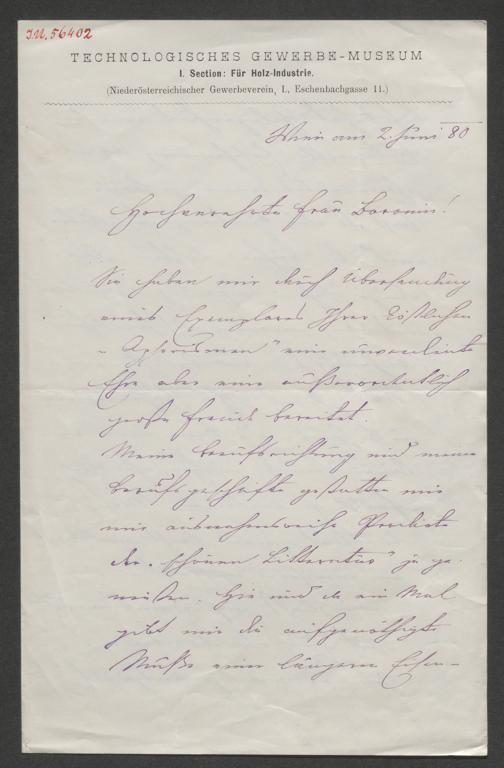 I.N. 56402
TECHNOLOGISCHES GEWERBE-MUSEUM
I. Section: Für Holz-Industrie.
(Niederösterreichischer Gewerbeverein, I., Eschenbachgasse 11.)
Wien am 2. Juni 80
Hochverehrte Frau Baronin!
Sie haben mir durch Übersendung
eines Exemplares Ihrer köstlichen
„Aphorismen" eine unverdiente
Ehre aber eine außerordentlich
große Freude bereitet.
Meine Berufsrichtung und meine
Berufsgeschäfte gestatten mir
nur ausnahmsweise Produkte
der „schönen Litteratur" zu ge-
nießen. Hie und da ein Mal
gibt mir die aufgenöthigte
Muße einer längeren Eisen-